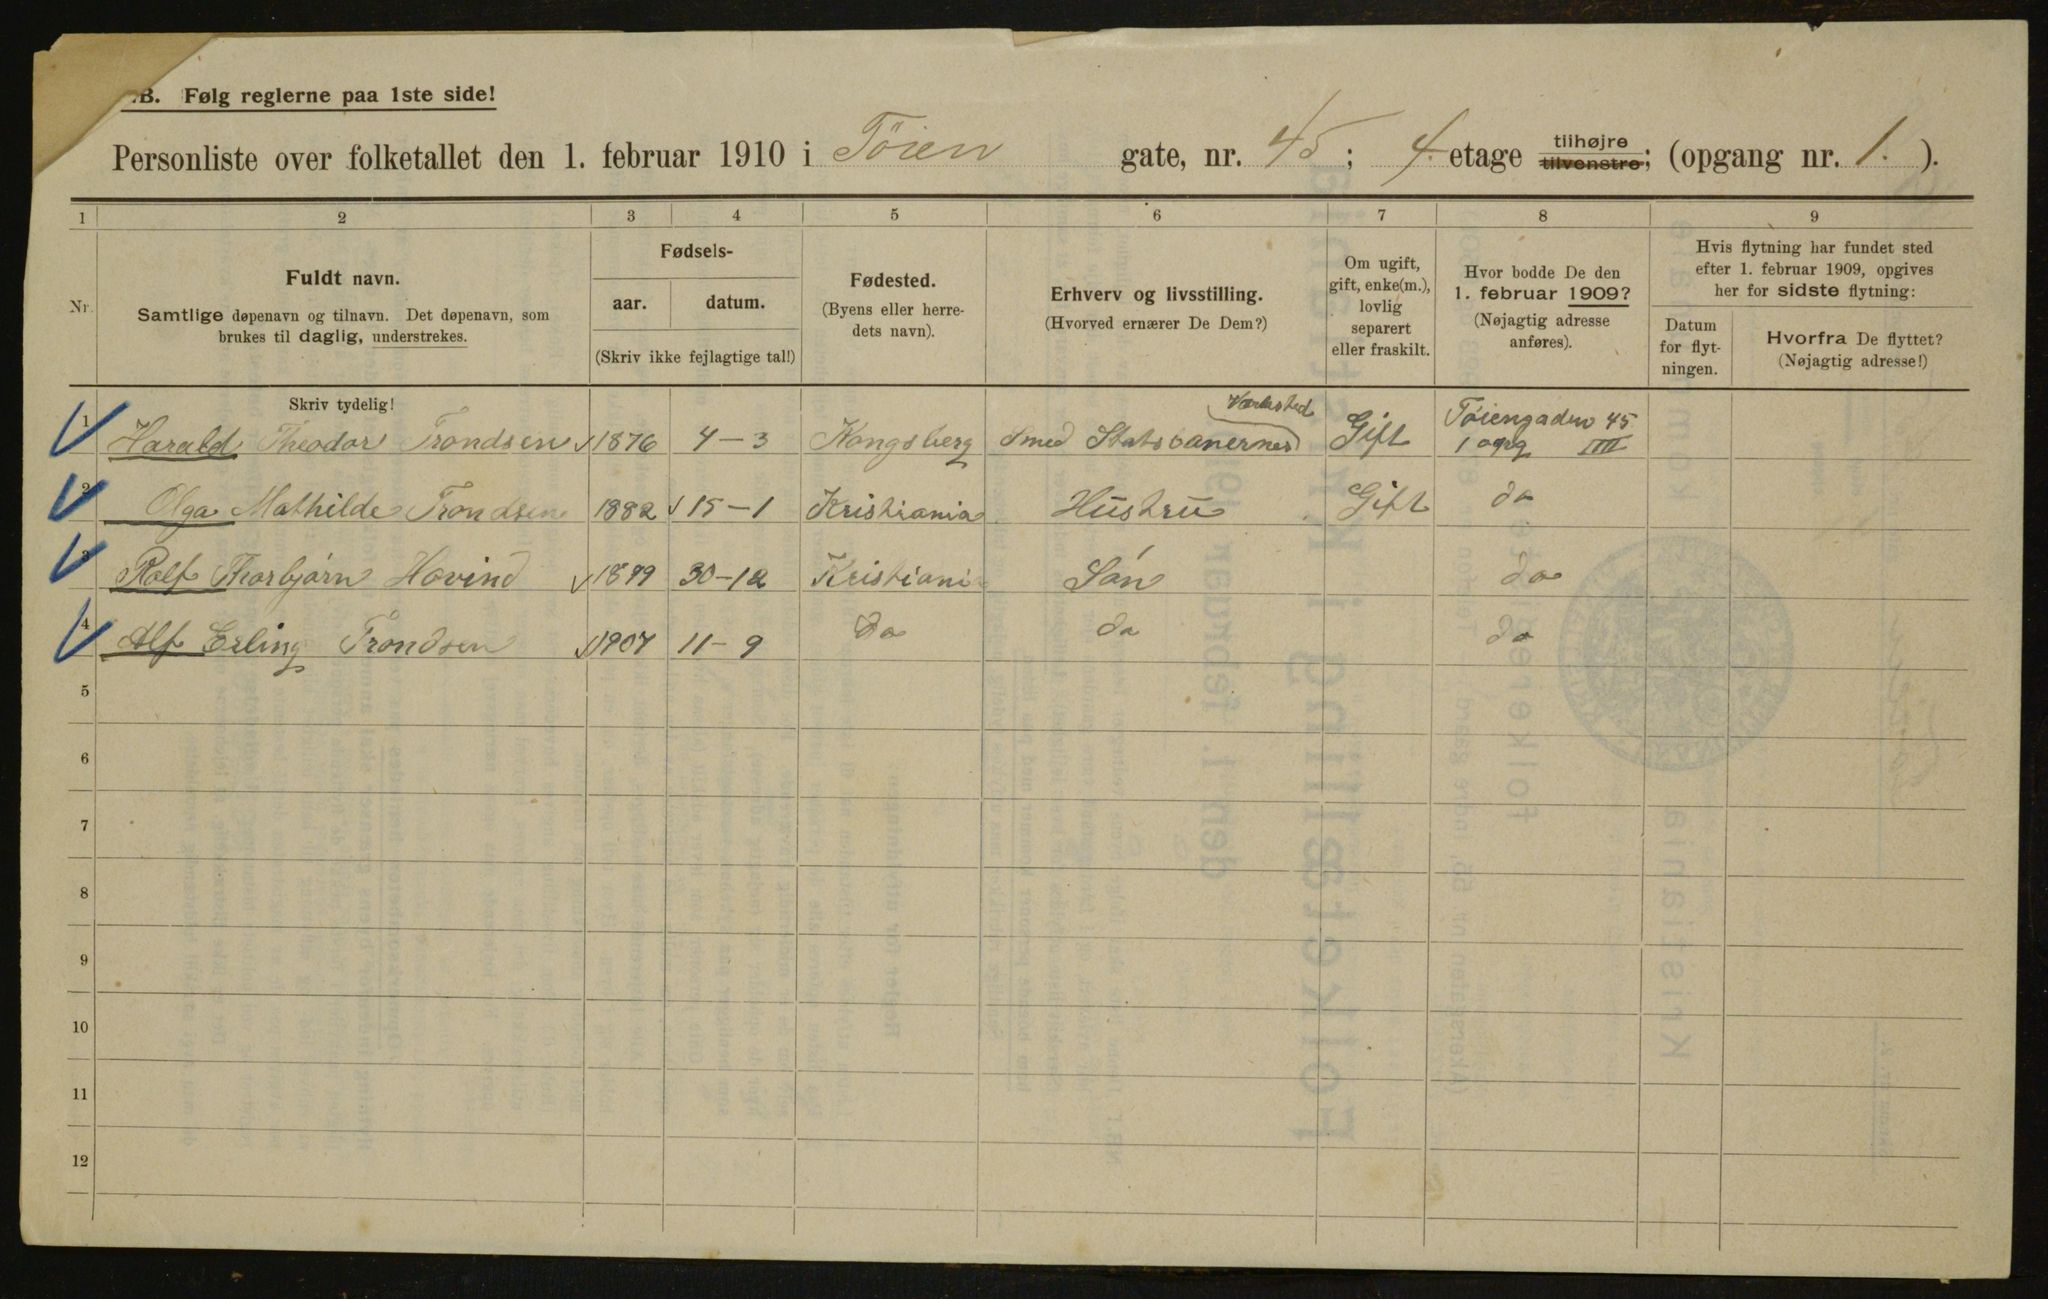 .B. Følg reglerne paa 1ste side!
Personliste over folketallet den 1. februar 1910 i Töien gate, nr. 45; 4. etage tilhøjre tilvenstre; (opgang nr. 1.).
1 2 3 4 5 6 7 8 9
Nr.
Fuldt navn.
Samtlige døpenavn og tilnavn. Det døpenavn, som
brukes til daglig, understrekes.
Fødsels-
aar. datum.
(Skriv ikke fejlagtige tal!)
Fødested.
(Byens eller herre-
dets navn).
Erhverv og livsstilling.
(Hvorved ernærer De Dem?)
Om ugift,
gift, enke(m.),
lovlig
separert
eller fraskilt.
Hvor bodde De den
1. februar 1909?
(Nøjagtig adresse
anføres).
Hvis flytning har fundet sted
efter 1. februar 1909, opgives
her for sidste flytning:
Datum
for flyt-
ningen.
Hvorfra De flyttet?
(Nøjagtig adresse!)
Skriv tydelig!
1 Harald Theodor Trondsen 1876 4-3 Kongsberg Smed Statsbanernes Værksted Gift Töiengaden 45 1 opg IIII
2 Olga Mathilde Trondsen 1882 15-1 Kristiania Hustru Gift do
3 Rolf Thorbjørn Hovind 1899 30-12 Kristiania Søn do
4 Alf Erling Trondsen 1907 11-9 do do do
5
6
7
8
9
10
11
12